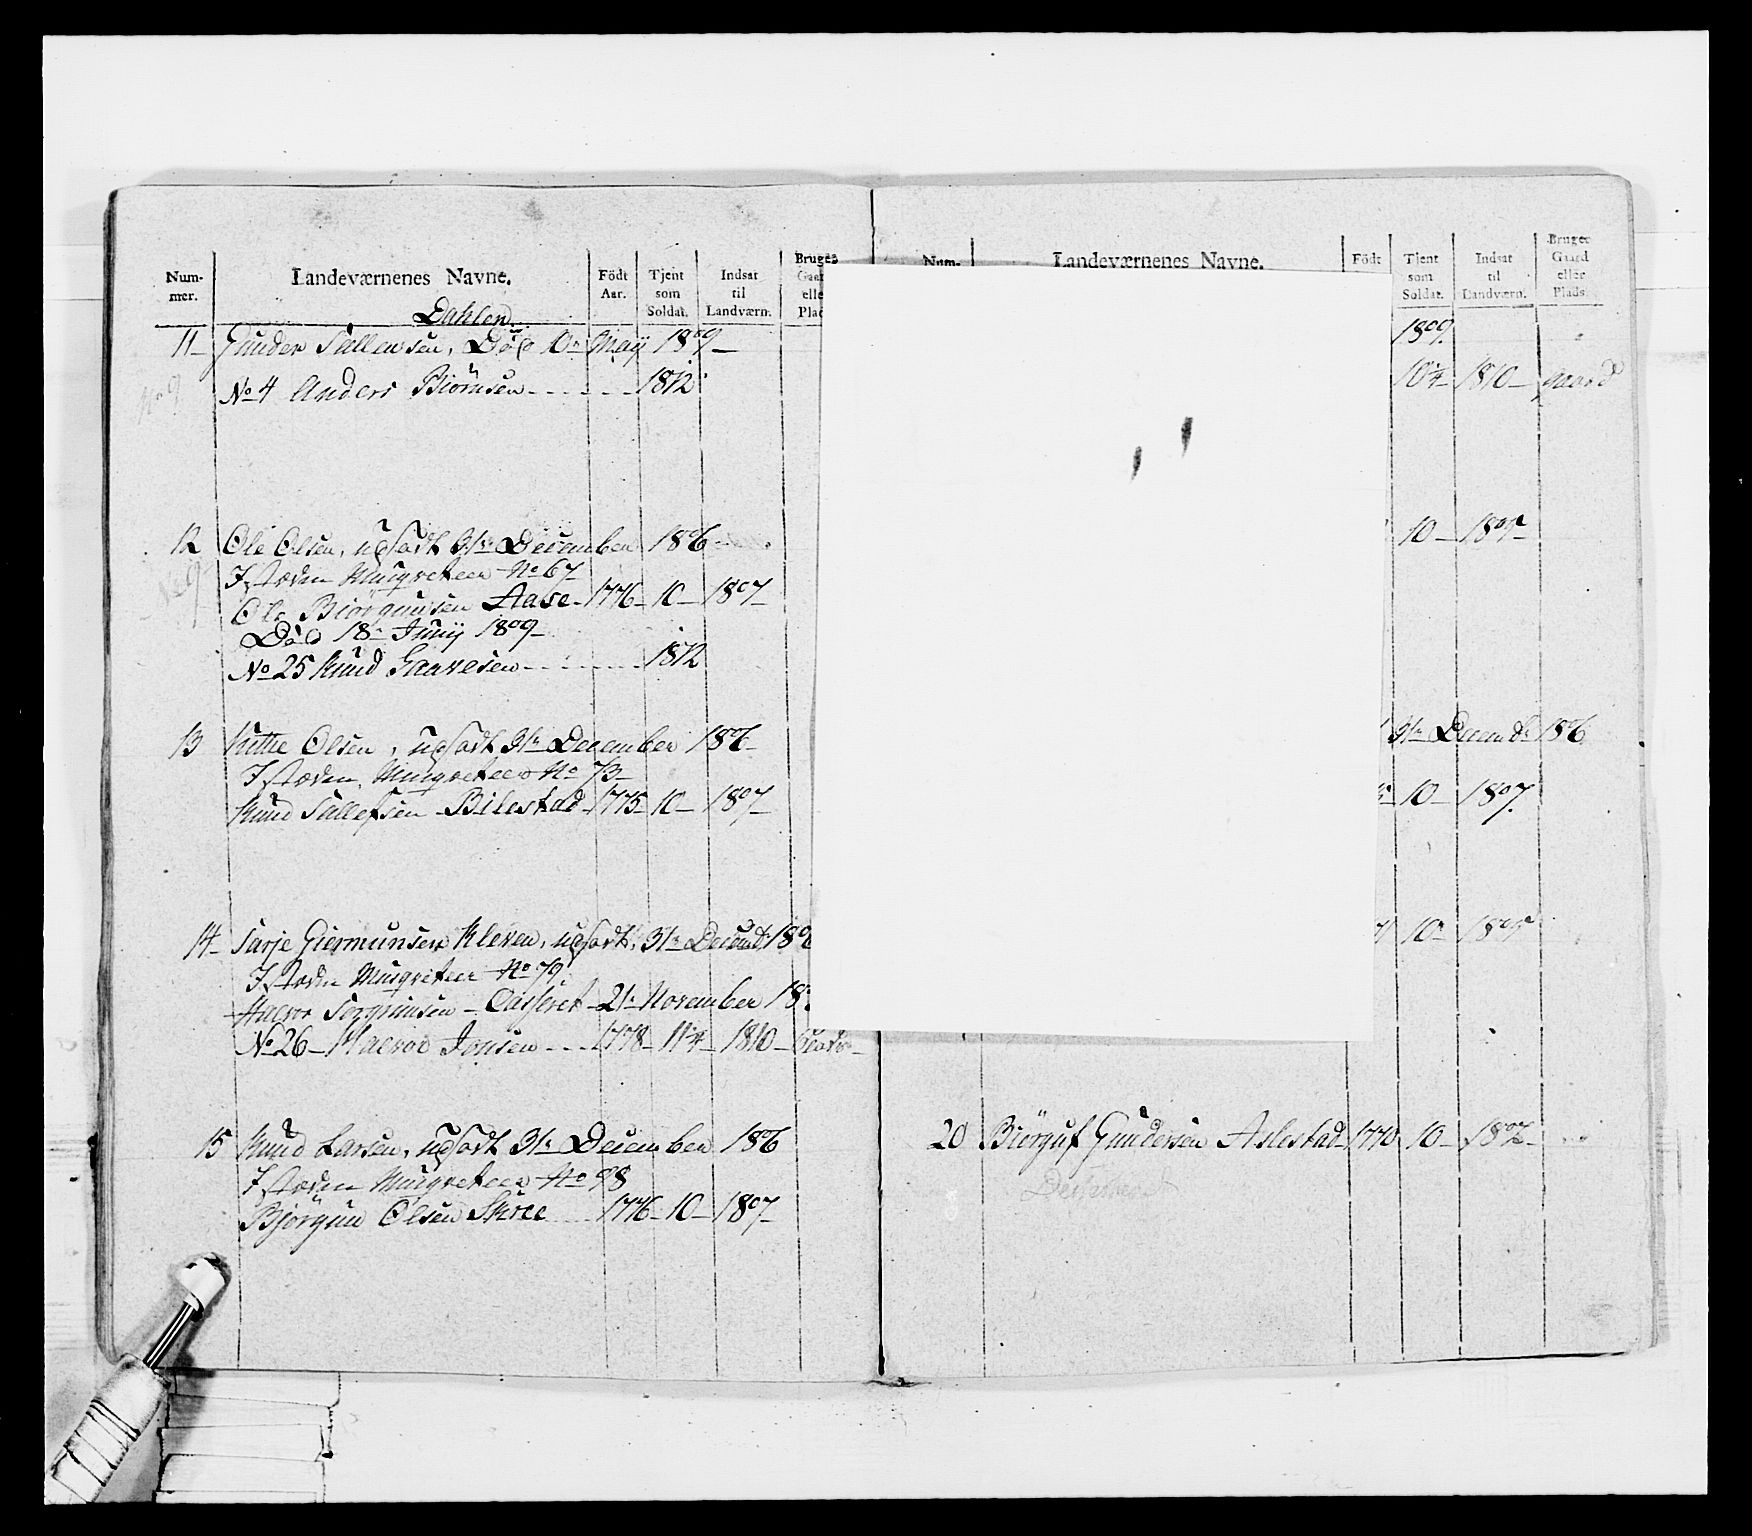 Num-
mer.
Landeværnenes Navne.
Födt
Aar.
Tjent
som
Soldat.
Indsat
til
Landværn.
Bruger
Gaard
elle
Plad
Dahlen.
11 – Gunder Sallevsen, Död 10de Maij 1809 –
No 9
No 4 Anders Biörnsen - - - - - 1812
12 Ole Olsen, udsadt 31te December 1806 –
No 9
I stæden Musqveteer No 67
Ole Biörgunsen Aase – 1776 – 10 – 1807 –
Död 18de Junij 1809 –
No 25 Knud Gaavesen - - - - - 1812
13 Kittie Olsen, udsadt 31te December 1806 –
I stæden Musqveteer No 73 –
Knud Sallefsen Bilestad – 1775 – 10 – 1807 –
14 – Tarje Giermunsen Kleven, udsadt 31te Decembr 180
I stæden Musqveteer No 79
Halvor Torgrimsen – Casseret – 21de November 18
No 26 – Halvor Jonsen - - - 1778 – 11 3/4 – 1810 –
15 Knud Larsen, udsadt 31te December 1806
I stæden Musqveteer No 98
Bjørgun Olsen Skree 1776 – 10 – 1807 –
Num-
Landeværnenes Navne.
Födt
Tjent
som
Soldat.
Indsat
til
Landværn.
Bruger
Gaard
eller
Plads.
1809.
10 3/4 – 1810 – gaard
10 – 1805 –
31te Decembr 1806
10 – 1807.
10 – 1805
20 Biörguf Gundersen Aslestad 1770 – 10 – 1802 –